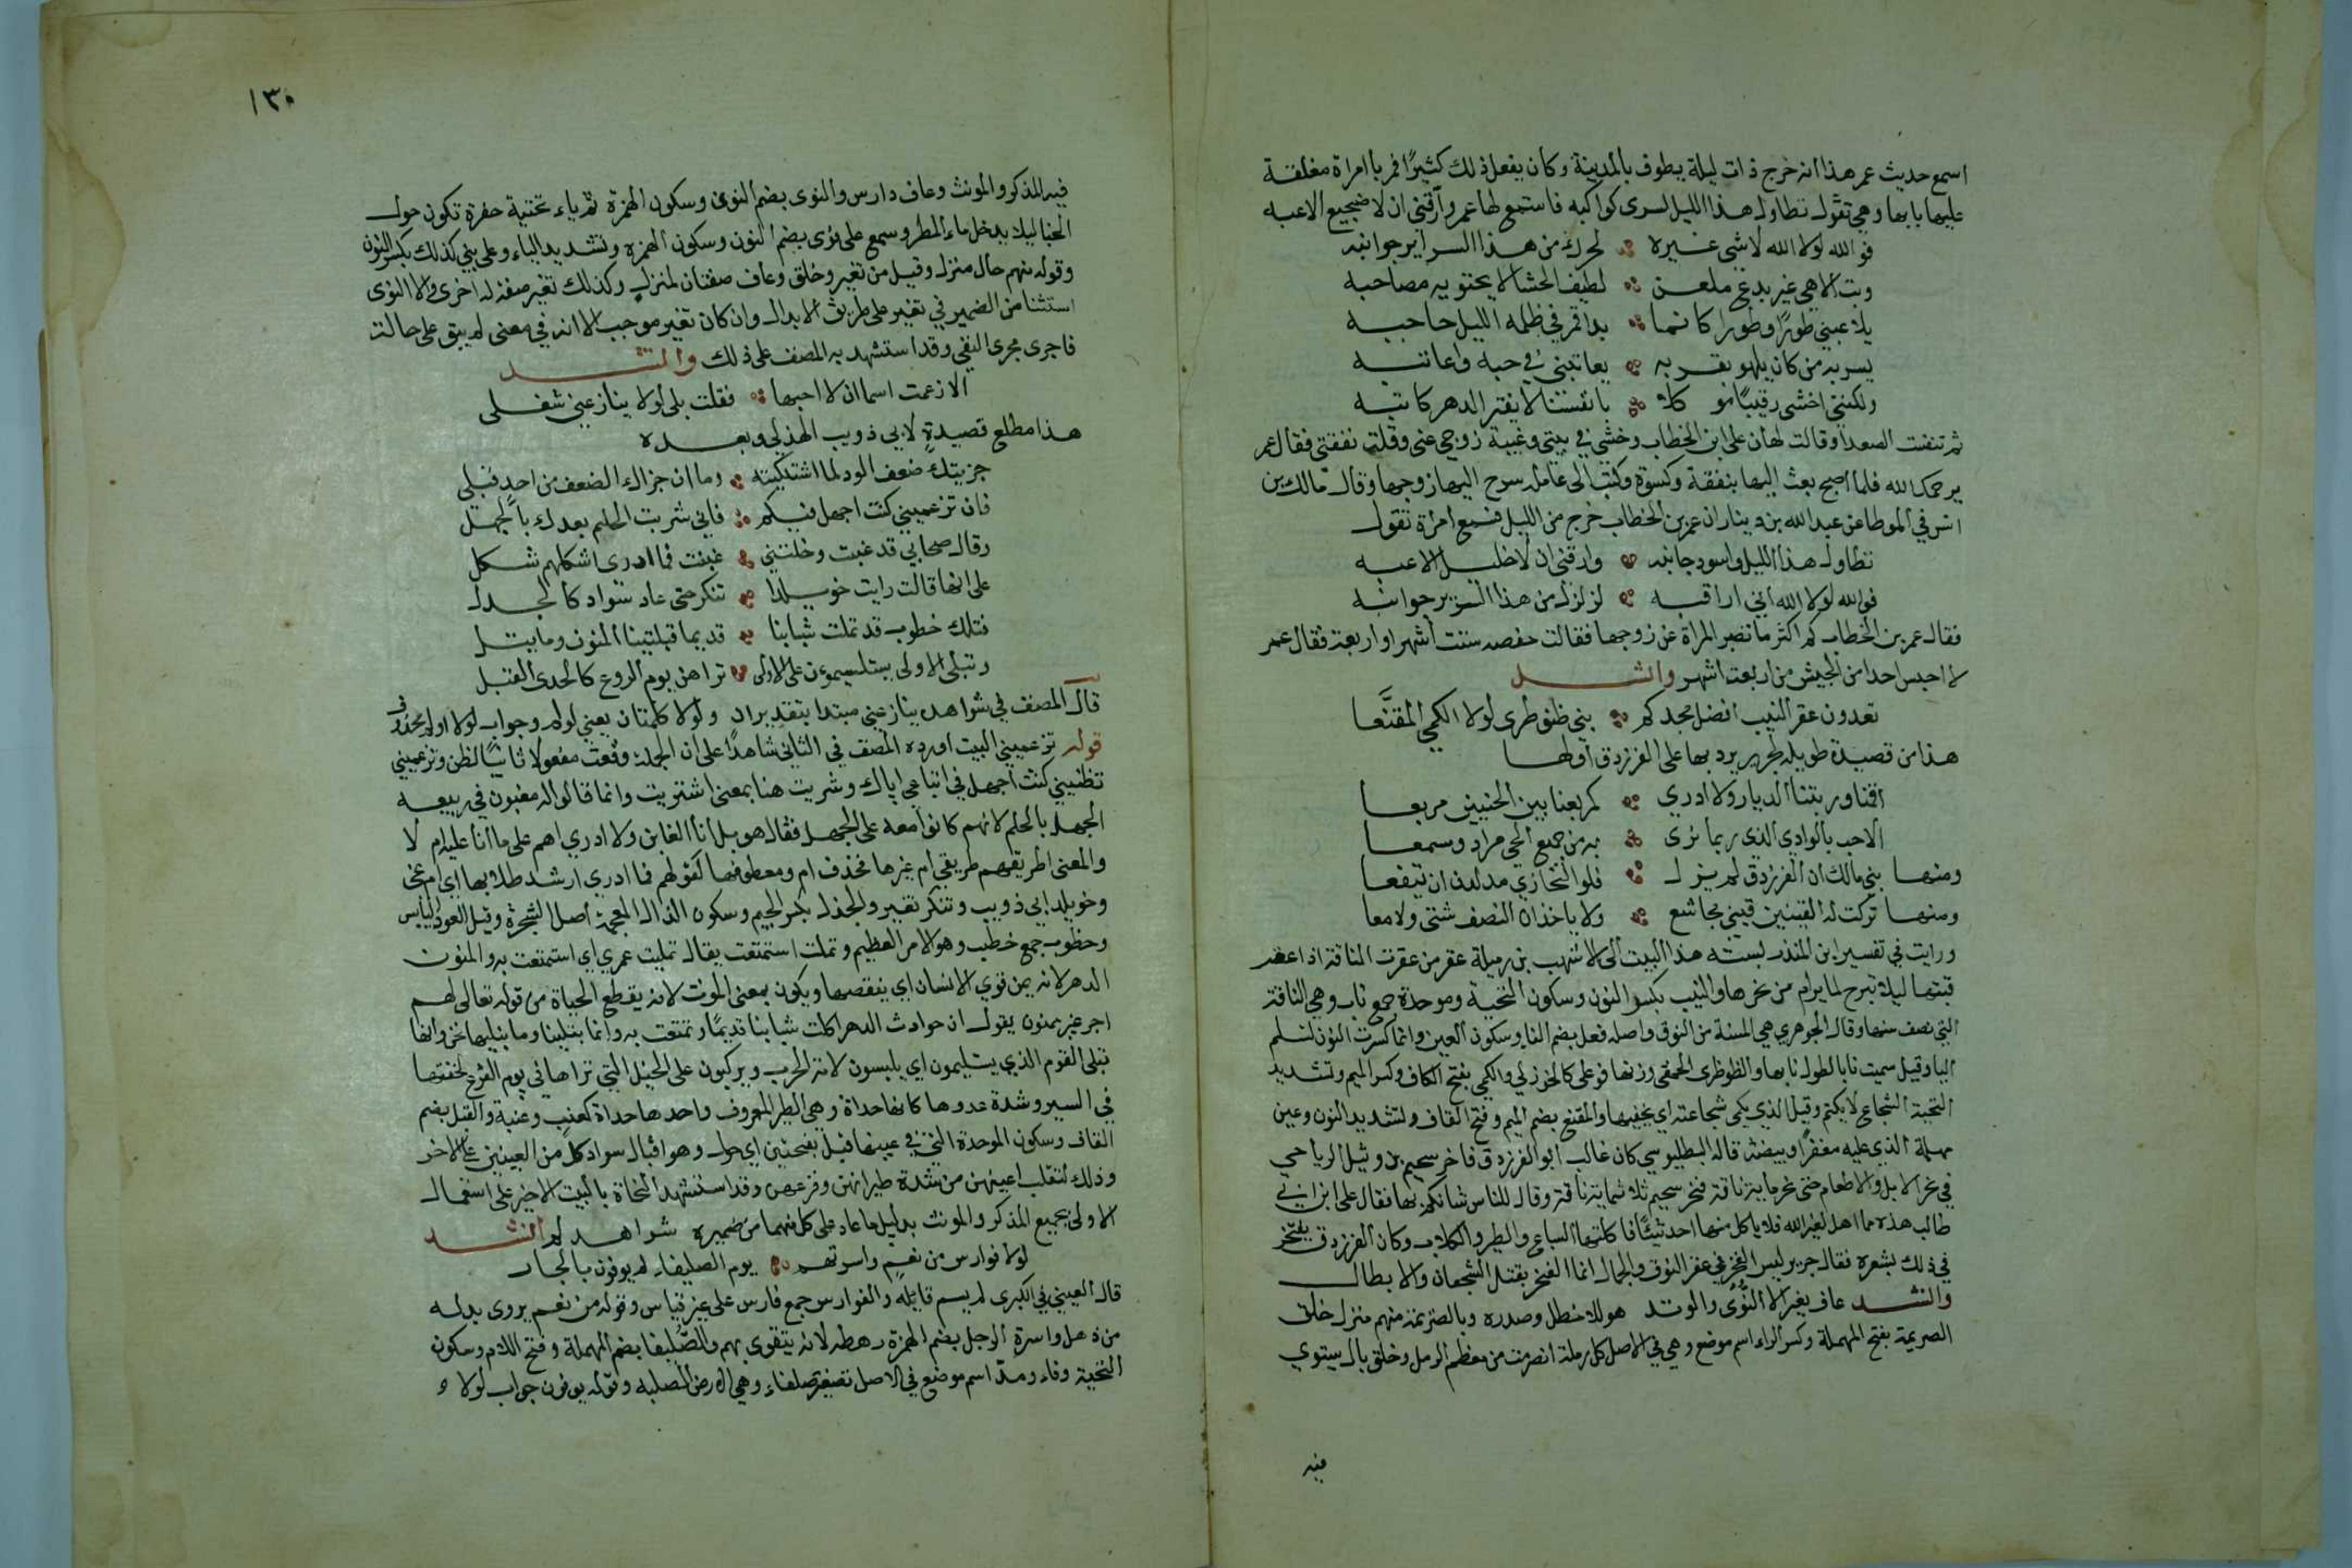 اسمع حديث عمر هذا انه خرج ذات ليلة يطوف بالمدينة وكان يفعل ذلك كثيرًا فمر بامراة مغلقة
عليها بابها وهي تقول تطاول هذا الليل تسرى كواكبه فاستمع لها عمر وارّقني ان لا ضجيع الاعبه
فو الله لولا الله لا شى غيره لحرك من هذا السرير جوانبه
وبت الاهي غير بدع ملعن لطيف الحشا لا يحتويه مصاحبه
يلاعبني طورًا وطورا كانما بدا قمر في ظلمه الليل حاجبه
يسر به من كان يلهو بقربه يعاتبني في حبه واعاتبه
ولكنني اخشى رقيبًا موكلا بانفسنا لا يفتر الدهر كاتبه
ثم تنفست الصعدا وقالت لهان على ابن الخطاب وحشتي في بيتي وغيبة زوجي عني وقلت نفقتي فقال عمر
يرحمك الله فلما اصبح بعث اليها بنفقة وكسوة وكتب الى عامله يسرح اليها زوجها وقال مالك بن
انس في الموطا عن عبد الله بن دينار ان عمر بن الخطاب خرج من الليل فسمع امراة تقول
تطاول هذا الليل واسود جانبه وارقني ان لا خليل الاعبه
فوالله لولا الله اني اراقبه لزلزل من هذا السرير جوانبه
فقال عمر بن الخطاب كم اكثر ما تصبر المراة عن زوجها فقالت حفصه ستت اشهر او اربعة فقال عمر
لا احبس احدا من الجيش من اربعت اشهر وانشد
تعدون عقر النيب افضل مجدكم بني ضوطرى لولا الكمي المقنّعا
هذا من قصيدة طويلة لجرير يرد بها على الفرزدق اولها
اقمنا وربتنا الديار ولا ادري كمربعنا بين الحنيين مربعا
الا حب بالوادي الذي ربما نرى به من جميع الحي مراد ومسمعا
ومنها بني مالك ان الفرزدق لم يزل فلو المخازي مد لدن ان تيفعا
ومنها تركت له القينين قيني مجاشع ولا ياخذان النصف شتى ولا معا
ورايت في تفسير ابن المنذر نسبته هذا البيت الى الاشهب بن رميلة عقر من عقرت الناقة اذا عقر
قبتها ليلا تبرح لما يرام من نحرها والنيب بكسر النون وسكون التحتية وموحدة جمع ناب وهي الناقة
التي نصف سنها وقال الجوهري هي المسنة من النوق واصله فعل بضم الفا وسكون العين وانما كسرت النون لتسلم
اليا وقيل سميت نابا لطول نابها والظوظرى الحمقى وزنها فوعلى كالخوزلي والكمي بفتح الكاف وكسر الميم وتشديد
التحتية الشجاع لا يكتم وقيل الذي يكمي شجاعته اي يخفيها والمقنع بضم الميم وفتح القاف وتشديد النون وعين
مهملة الذي عليه مغفرًا وبيضة قاله البطليوسي كان غالب ابو الفرزدق فاخر سحيم بن وثيل الرياحي
في نحر الابل والاطعام حتى نحر ماية ناقة فنحر سحيم ثلاثماية ناقة وقال للناس شانكم بها فقال على ابن ابي
طالب هذه مما اهل لغير الله فلا ياكل منها احد شيئًا فاكلتها السباع والطير والكلاب وكان الفرزدق يفتخر
في ذلك بشعره فقال جرير ليس الفخر في عقر النوق والجمال انما الفخر بقتل الشجعان والابطال
وانشد عاف يغير الا النُّؤى والوتد هو للاخطل وصدره وبالصريمة منهم منزل خلق
الصريمة بفتح المهملة وكسر الراء اسم موضع وهي في الاصل كل رملة انصرمت من معظم الرمل وخلق بال يستوي
فيه
١٣٠
فيه المذكر والمونث وعاف دارس والنوى بضم النون وسكون الهمزة ثم ياء تحتية حفرة تكون حول
الخبا ليلا يدخل ماء المطر وسمع على نوى بضم النون وسكون الهمزه وتشديد الياء وعلى نيي كذلك بكسر النون
وقوله منهم حال منزل وقيل من تغير وخلق وعاف صفتان لمنزل وكذلك تغير صفة له اخرى والا النوى
استثنا من الضمير في تغير على طريق الابدال وان كان تغير موجب الا انه في معنى لم يبق على حالته
فاجرى مجرى النفي وقد استشهد به المصنف على ذلك وانشد
الا زعمت اسما ان لا احبها فقلت بلى لولا ينازعني شغلي
هذا مطلع قصيدة لابي ذويب الهذلي وبعده
جزيتك ضعف الود لما اشتكيته وما ان جزاك الضعف من احد قبلي
فان تزعميني كنت اجهل فيكم فاني شريت الحلم بعدك بالجهل
وقال صحابي قد غبنت وخلتني غبنت فما ادرى اشكلهم شكلي
على انها قالت رايت خويلدا تنكر حتى عاد سواد كالجدل
فتلك خطوب قد تملت شبابنا قديما قبليتنا المنون وما نبتلي
وتبلى الاولى يستليمون على الاولى تراهن يوم الروع كالحدى القبل
قال المصنف في شواهده ينازعني مبتدا بتقدير ان ولولا كلمتان بمعنى لو لم وجواب لولا او لم محذوف
قوله تزعميني البيت اورده المصنف في الثاني شاهدًا على ان الجملة وقعت مفعولا ثانيًا لظن وتزعميني
تظنيني كنت اجهل في اتباعي اياك وشريت هنا بمعنى اشتريت وانما قالوا له مغبون في بيعه
الجهل بالحلم لانهم كانوا معه على الجهل فقال هو بل انا الغابن ولا ادري اهم على ما انا عليه ام لا
والمعنى اطريقهم طريقي ام غيرها فحذف ام ومعطوفها كقولهم فما ادري ارشد طلابها اي ام غي
وخويلد ابي ذويب وتنكر تغير والجذل بكسر الجيم وسكون الذال المعجمة اصل الشجرة وقيل العود اليابس
وخطوب جمع خطب وهو الامر العظيم وتملت استمتعت يقال تمليت عمري اي استمتعت به والمنون
الدهر لانه يمن قوي الانسان اي ينقصها ويكون بمعنى الموت لانه يقطع الحياة من قوله تعالى لهم
اجر غير ممنون يقول ان حوادث الدهر اكلت شبابنا قديمًا وتمتعت به وانما تبلينا وما نبليها نحن وانها
تبلى القوم الذي يستليمون اي يلبسون لامة الحرب ويركبون على الخيل التي تراها في يوم الفزع لخفتها
في السير وشدة عدوها كانها حداة وهي الطير المعروف واحدها حداة كعنب وعنبة والقبل بضم
القاف وسكون الموحدة التي في عينها قبل بفتحتين اي حول وهو اقبال سواد كل من العينين على الاخر
وذلك لتقلب اعينهن من شدة طيرانهن وفزعهن وقد استشهد النحاة بالبيت الاخير على استعمال
الاولى بجميع المذكر والمونث بدليل ما عاد على كل منهما من ضميره شواهد لم انشد
لولا فوارس من نعم واسرتهم يوم الصليفاء لم يوفون بالجار
قال العيني في الكبرى لم يسم قايله والفوارس جمع فارس على غير قياس وقوله من نعم يروى بدله
من ذهل واسرة الرجل بضم الهمزة رهطه لانه يتقوى بهم والصُّليفا بضم المهملة وفتح اللام وسكون
التحتية وفاء ومدّ اسم موضع في الاصل تصغير صلفاء وهي الارض الصلبه وقوله يوفون جواب لولا و